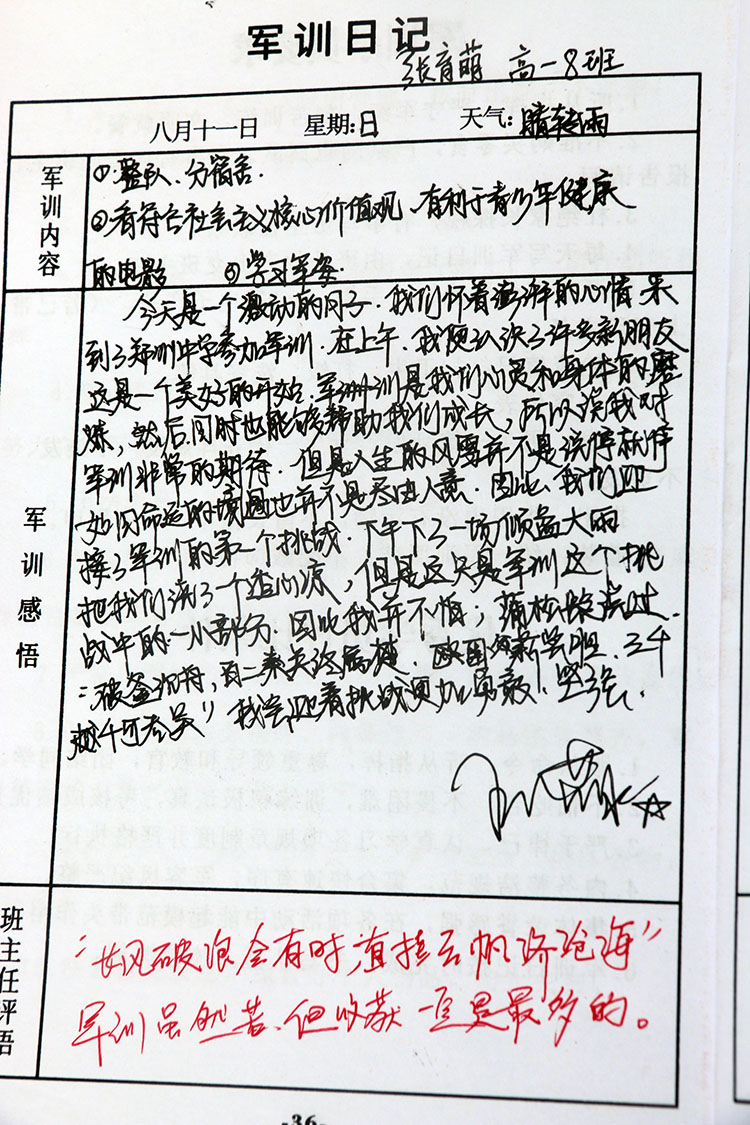 军训日记
张育萌 高一8班
八月十一日 星期:日 天气:晴转雨
军训内容
①整队、分宿舍.
②看符合社会主义核心价值观、有利于青少年健康
的电影 ③学习军姿.
军训感悟
今天是一个激动的日子.我们怀着澎湃的心情来
到了郑州中学参加军训.在上午.我便认识了许多新朋友
这是一个美好的开始.军训是我们心灵和身体的磨
炼,然后同时也能够帮助我们成长,所以说我对
军训非常的期待.但是人生的风雨并不是说停就停
如同命运的境遇也并不是尽由人意.因此我们迎
接了军训的第一个挑战.下午下了一场倾盆大雨
把我们浇了一个透心凉,但是这只是军训这个挑
战中的一小部分.因此我并不怕;蒲松龄说过.
"破釜沉舟,百二秦关终属楚.
越甲可吞吴"我会迎着挑战更加勇敢!坚强.
班主任评语
"长风破浪会有时,直挂云帆济沧海"
军训虽然苦.但收获一定是最多的。
-36-